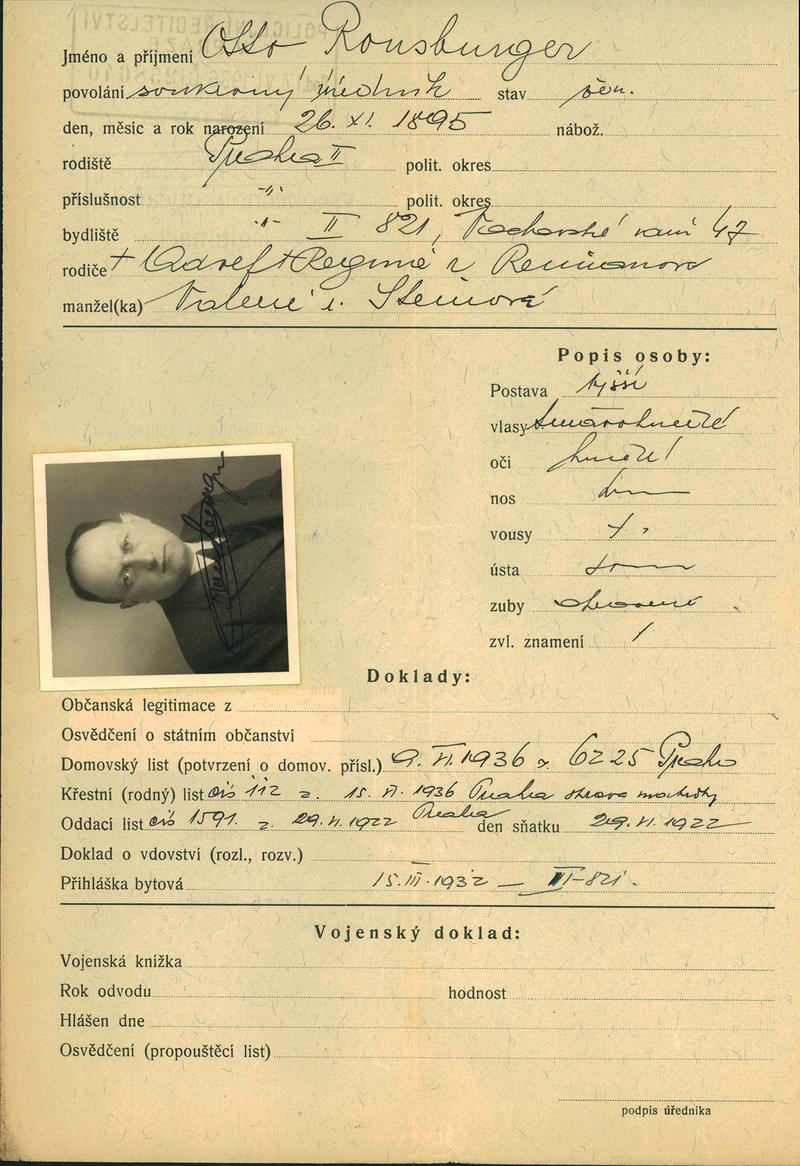 Jméno a příjmení Otto Ronsburger
povolání soukromý úředník stav žen.
den, měsíc a rok narození 26. XI. 1895 nábož.
rodiště Praha II polit. okres
příslušnost -"- polit. okres
bydliště -"- II 821, 47
rodiče + Adolf + Regina r.
manžel(ka) Valerie r. Steinová
Popis osoby:
Postava vyšší
vlasy tmavohnědé
oči hnědé
nos
vousy
ústa
zuby
zvl. znamení /
Doklady:
Občanská legitimace z
Osvědčení o státním občanství
Domovský list (potvrzení o domov. přísl.) 9. VI. 1936 z. 6225 Praha
Křestní (rodný) list čís 112 z. 15. VI. 1936 Praha
Oddací list čís 1591. z. 29. VI. 1922 Praha den sňatku 29. VI. 1922
Doklad o vdovství (rozl., rozv.) —
Přihláška bytová 15. III. 1932 — II-821.
Vojenský doklad:
Vojenská knížka
Rok odvodu hodnost
Hlášen dne
Osvědčení (propouštěcí list)
podpis úředníka